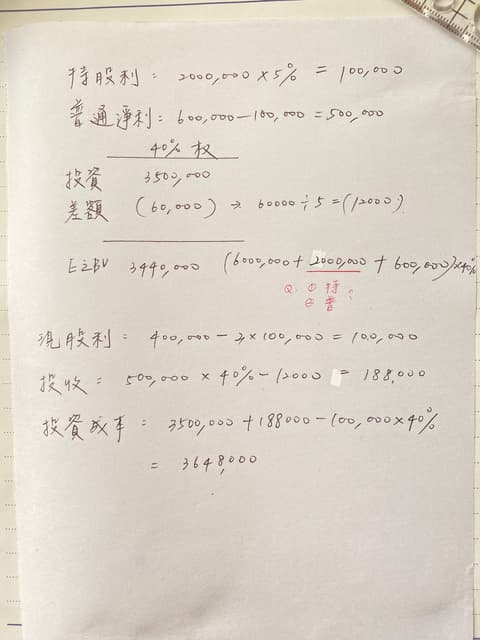 特股利: 2000,000 × 5% = 100,000
普通淨利: 600,000 - 100,000 = 500,000
40% 权
投資 3500,000
差額 (60,000) → 60000 ÷ 5 = (12000)
E之BV 3440,000 (6000,000 + 2000,000 + 600,000) × 40%
Q. ① 特
② 普 ?
現股利: 400,000 - 3 × 100,000 = 100,000
投收: 500,000 × 40% - 12000 = 188,000
投資成本: 3500,000 + 188000 - 100,000 × 40%
= 3648,000